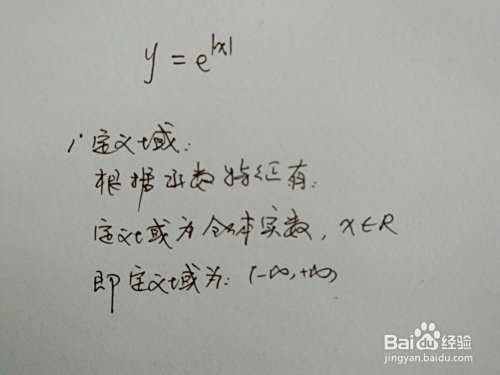 y = e^|x|
1' 定义域:
根据函数特征有:
定义域为全体实数, x∈R
即定义域为: (-∞, +∞)
Bai du 经验
jingyan.baidu.com